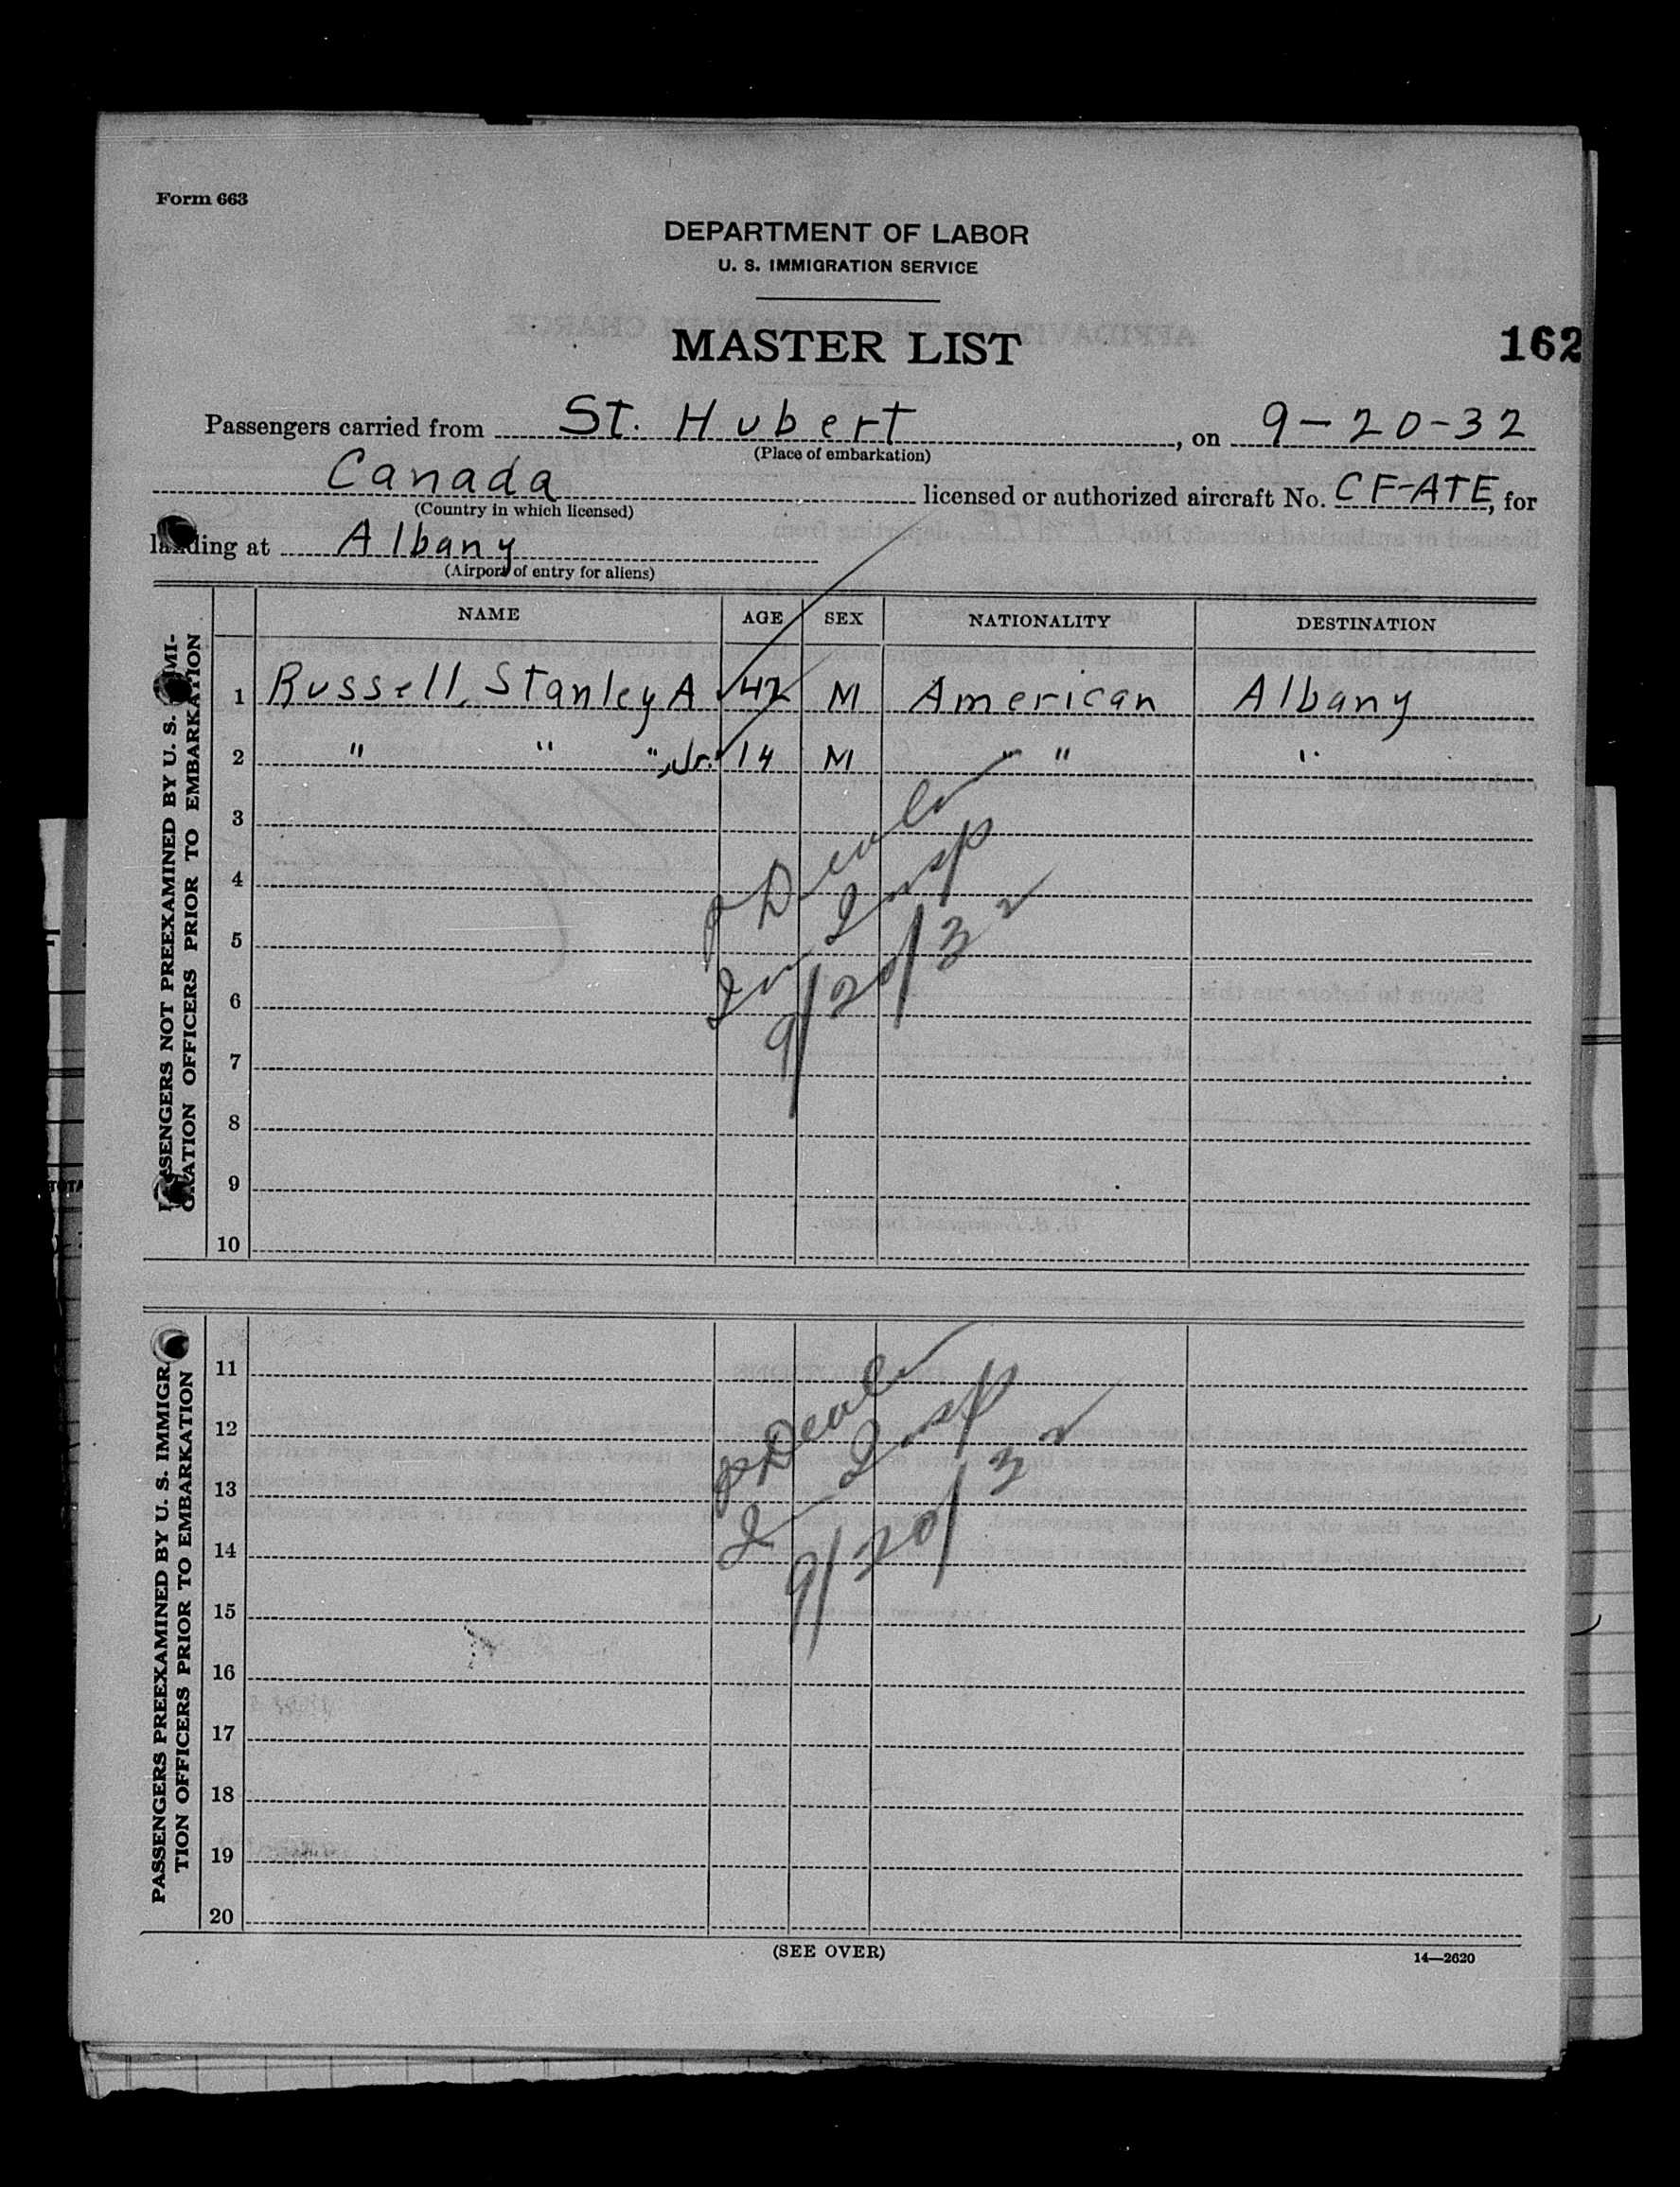 Form 663
DEPARTMENT OF LABOR
U. S. IMMIGRATION SERVICE
MASTER LIST
162
Passengers carried from St. Hubert, on 9-20-32
(Place of embarkation)
Canada licensed or authorized aircraft No. CF-ATE, for
(Country in which licensed)
landing at Albany
(Airport of entry for aliens)
NAME AGE SEX NATIONALITY DESTINATION
PASSENGERS NOT PREEXAMINED BY U. S. IMMI-
GRATION OFFICERS PRIOR TO EMBARKATION
1 Russell, Stanley A 42 M American Albany
2 " " ", Jr. 14 M " " "
3
4
5
6
7
8
9
10
Insp
9/20/32
PASSENGERS PREEXAMINED BY U. S. IMMIGRA-
TION OFFICERS PRIOR TO EMBARKATION
11
12
13
14
15
16
17
18
19
20
Insp
9/20/32
(SEE OVER)
14—2620